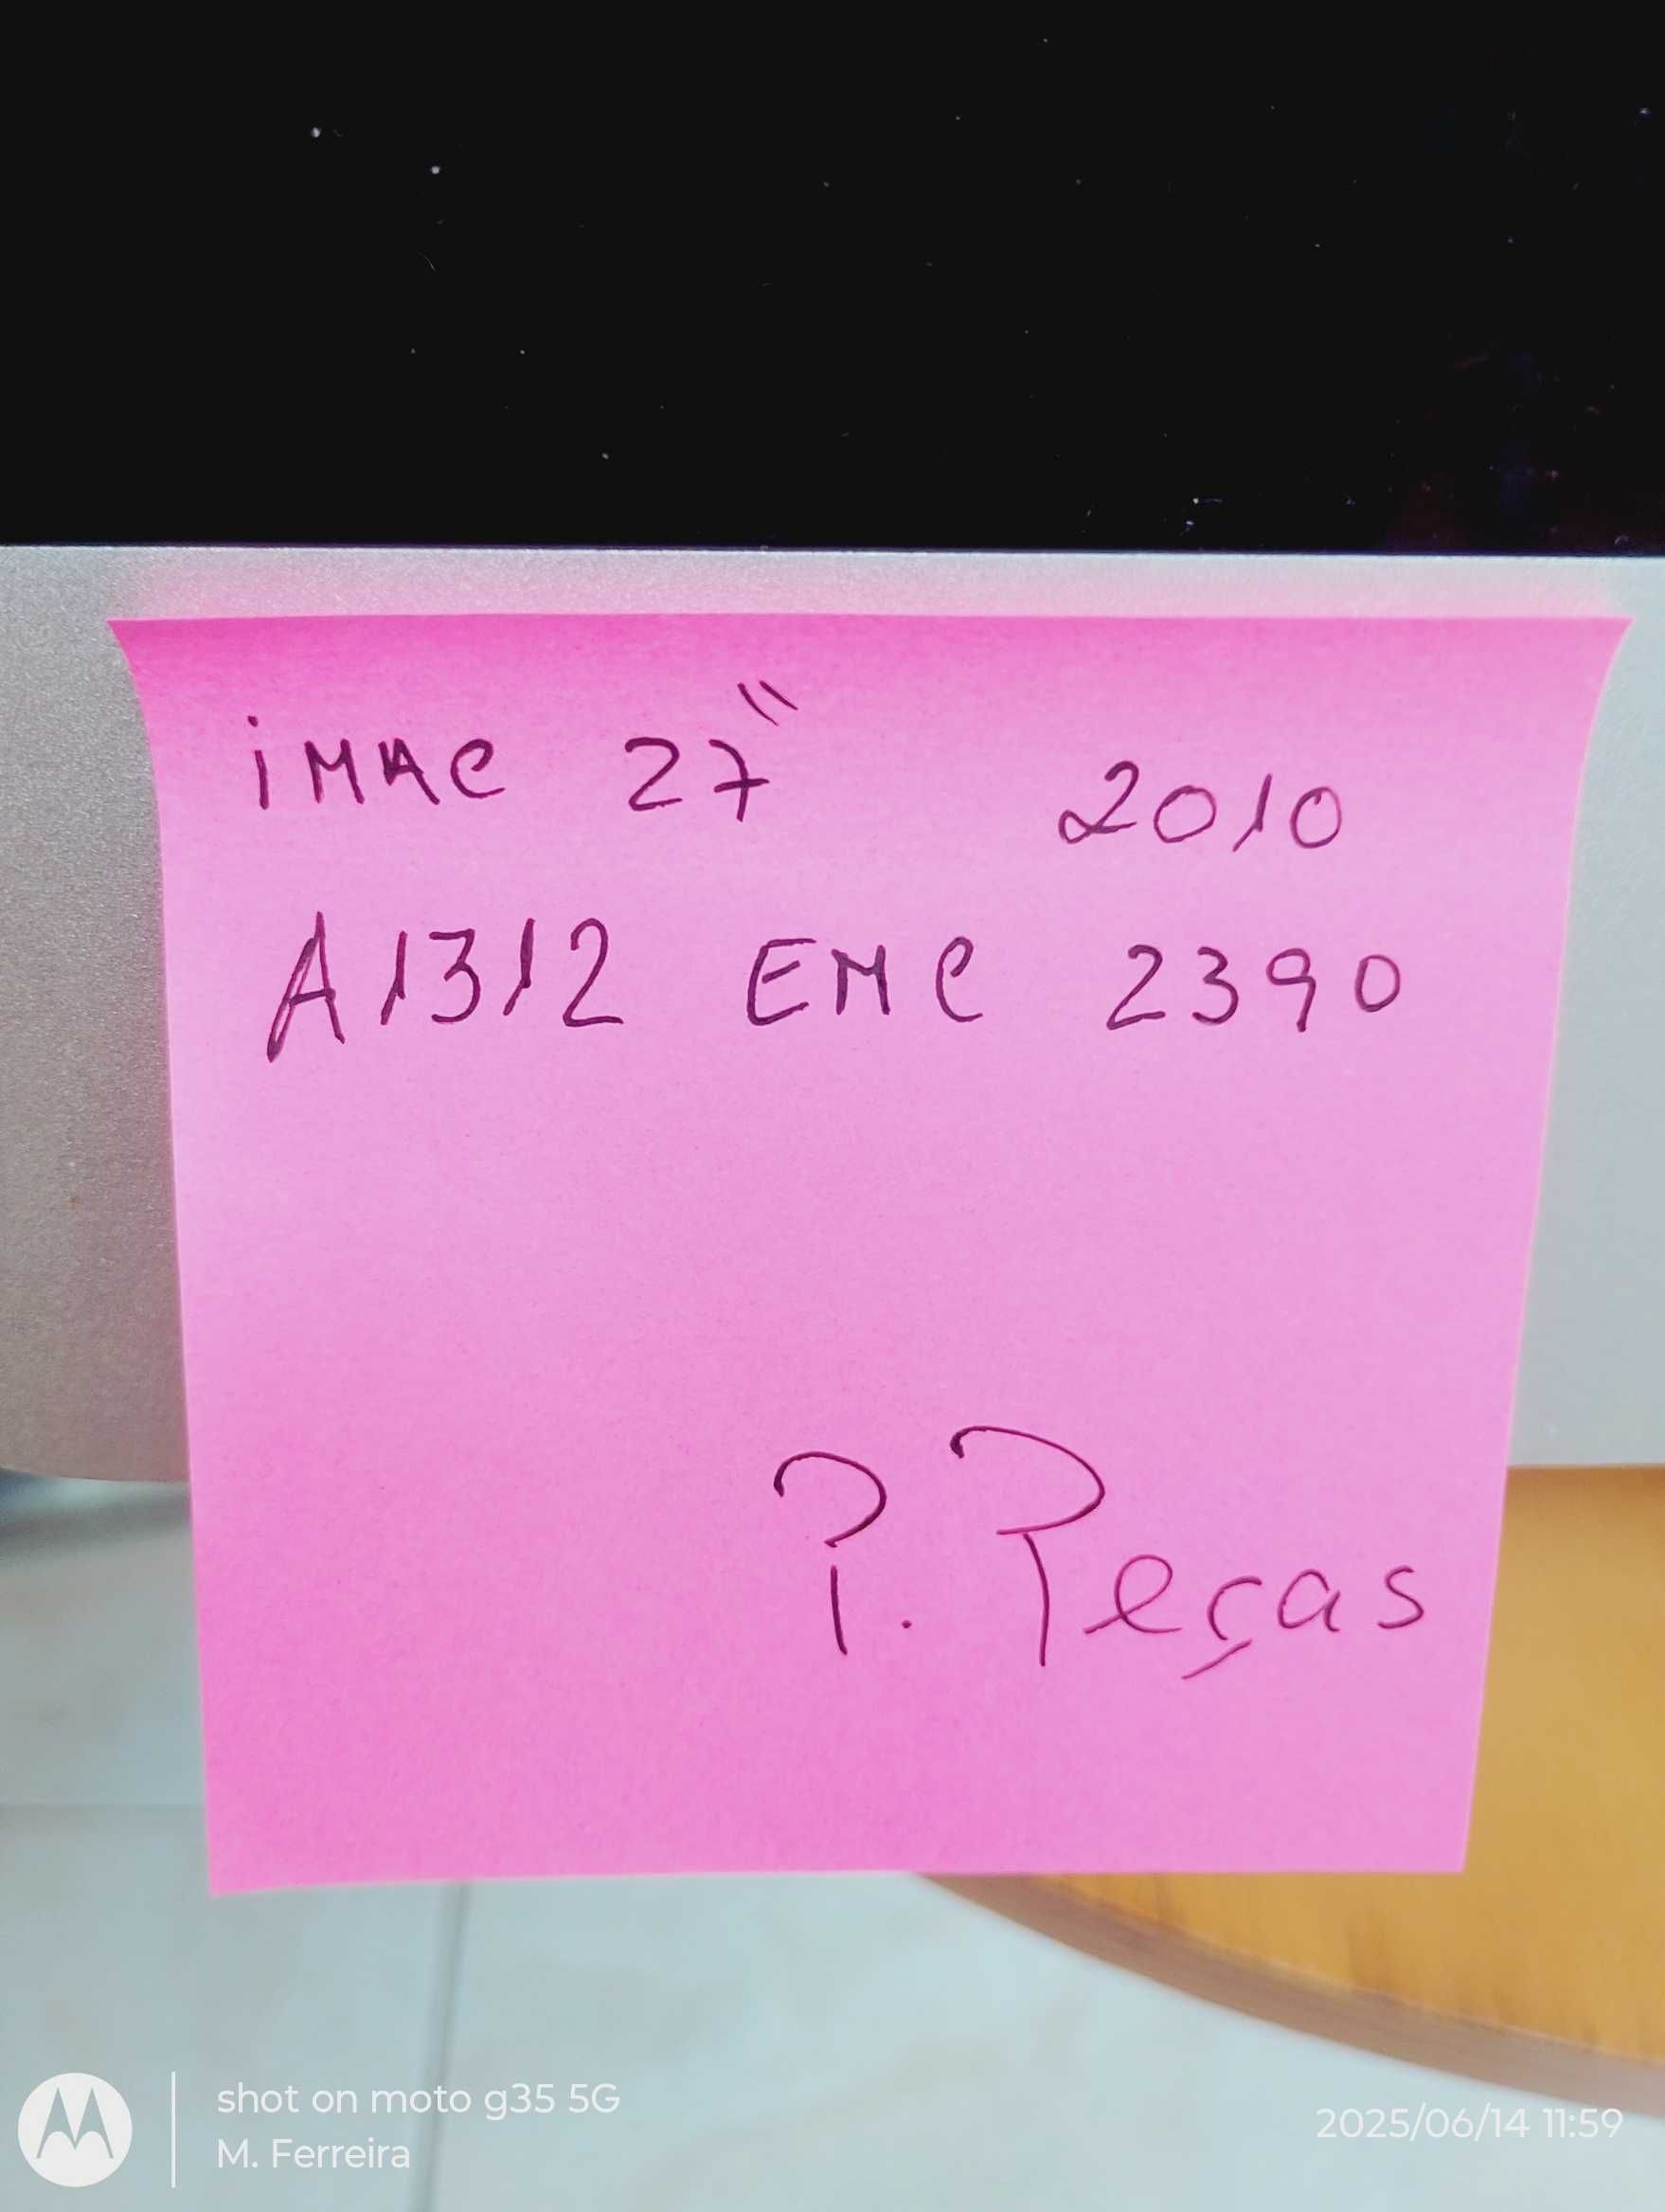 iMAC 27" 2010
A1312 EMC 2390
P. Peças
shot on moto g35 5G
M. Ferreira
2025/06/14 11:59